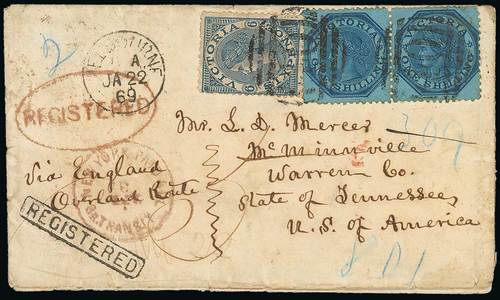 MELBOURNE
A
JA 22
69
REGISTERED
VICTORIA
SIXPENCE
6 6
VICTORIA
ONE SHILLING
VICTORIA
ONE SHILLING
2
Mr. L. D. Mercer
McMinnville
Warren Co.
State of Tennessee
U.S. of America
Via England
Overland Route
NEW YORK
BR. TRANSIT
REGISTERED